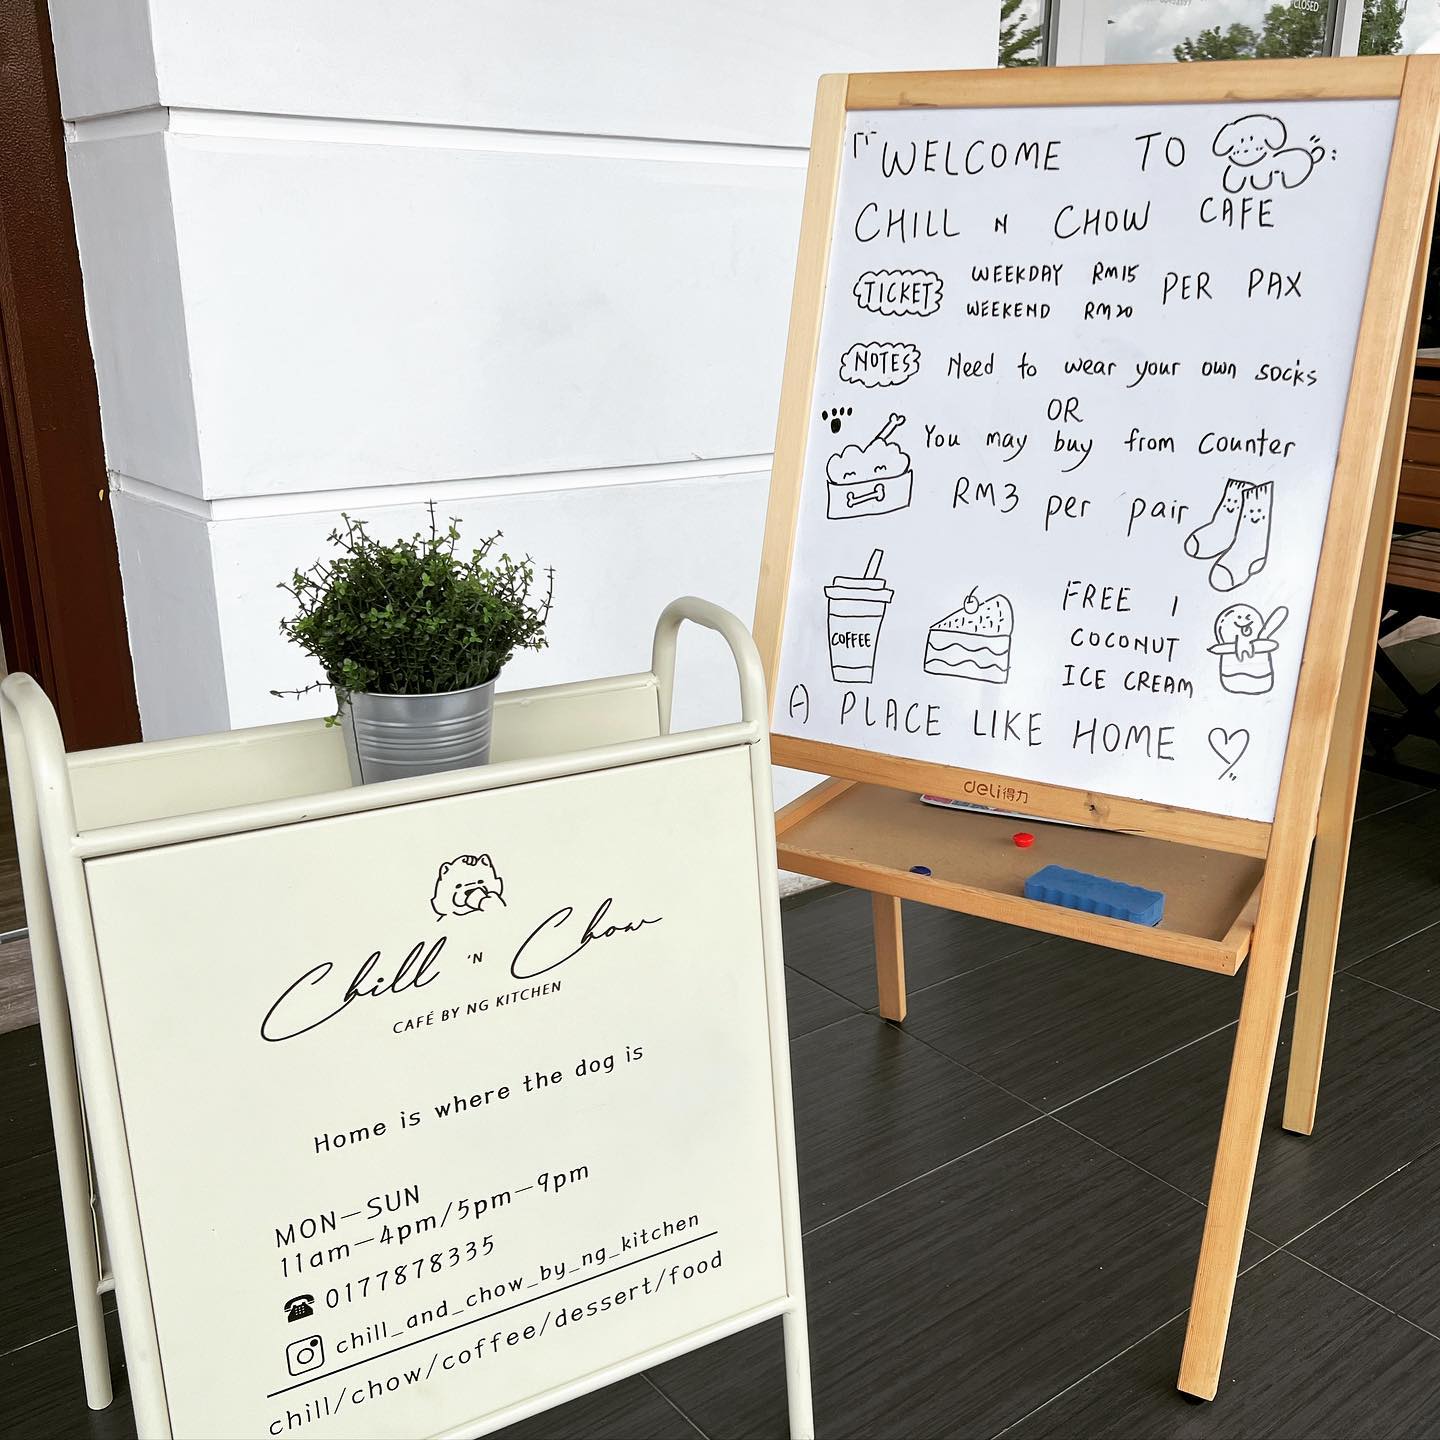 CLOSED
WELCOME TO
CHILL N CHOW CAFE
TICKET WEEKDAY RM15 PER PAX
WEEKEND RM20
NOTES Need to wear your own socks
OR
You may buy from counter
RM3 per pair
COFFEE
FREE 1
COCONUT
ICE CREAM
A PLACE LIKE HOME
deli得力
Chill 'N Chow
CAFÉ BY NG KITCHEN
Home is where the dog is
MON—SUN
11am—4pm/5pm—9pm
0177878335
chill_and_chow_by_ng_kitchen
chill/chow/coffee/dessert/food